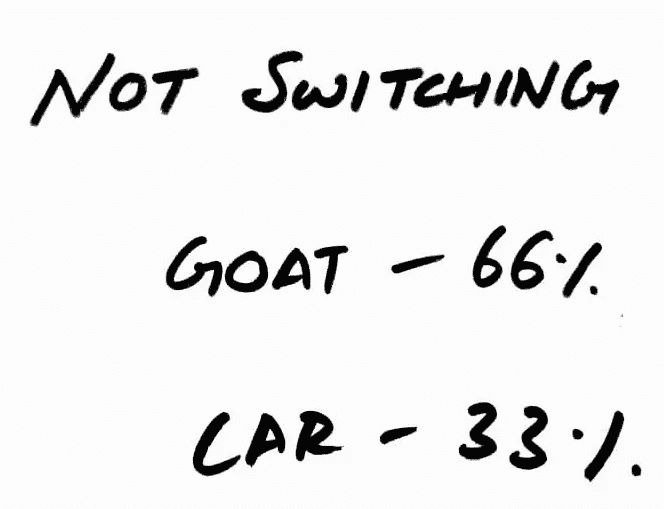 NOT SWITCHING
GOAT - 66%
CAR - 33%